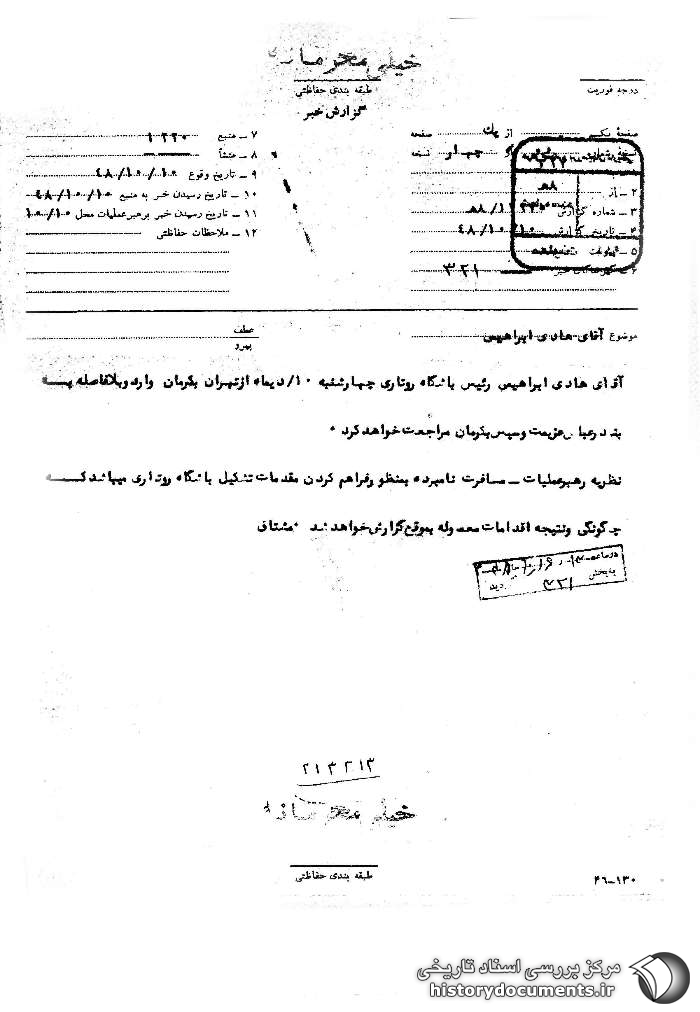 خیلی محرمانه
درجه فوریت
طبقه بندی حفاظتی
گزارش خبر
صفحه یک از یک صفحه
نسخه چهار نسخه
۲ ـ از
۳ ـ شماره گزارش
۴ ـ تاریخ گزارش ۴۸/۱۰/۱۰
۳۲۱
۷ ـ منبع ۱۲۲۰
۸ ـ منشأ
۹ ـ تاریخ وقوع ۴۸/۱۰/۱۰
۱۰ ـ تاریخ رسیدن خبر به منبع ۴۸/۱۰/۱۰
۱۱ ـ تاریخ رسیدن خبر برهبر عملیات محل
۱۲ ـ ملاحظات حفاظتی
موضوع آقای هادی ابراهیمی
عطف
پیرو
آقای هادی ابراهیمی رئیس باشگاه روتاری چهارشنبه ۱۰/دیماه ازتهران بکرمان وارد وبلافاصله به
بندرعباس عزیمت وسپس بکرمان مراجعت خواهد کرد ۰
نظریه رهبرعملیات ـ مسافرت نامبرده بمنظور فراهم کردن مقدمات تشکیل باشگاه روتاری میباشد که
چگونگی ونتیجه اقدامات معموله بموقع گزارش خواهد شد ۰ مشتاق
بخش ۳۲۱
۲۱۳۲۱۳
خیلی محرمانه
طبقه بندی حفاظتی
۴۶-۱۳۰
مرکز بررسی اسناد تاریخی
historydocuments.ir